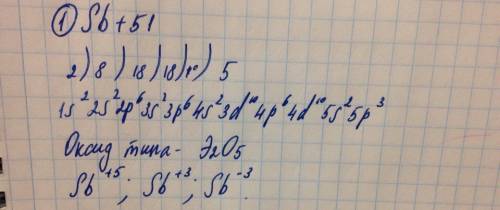 ① Sb +51
2 ) 8 ) 18 ) 18 ) ) 5
1s² 2s² 2p⁶ 3s² 3p⁶ 4s² 3d¹⁰ 4p⁶ 4d¹⁰ 5s² 5p³
Оксид типа - Э2O5
Sb⁺⁵; Sb⁺³; Sb⁻³